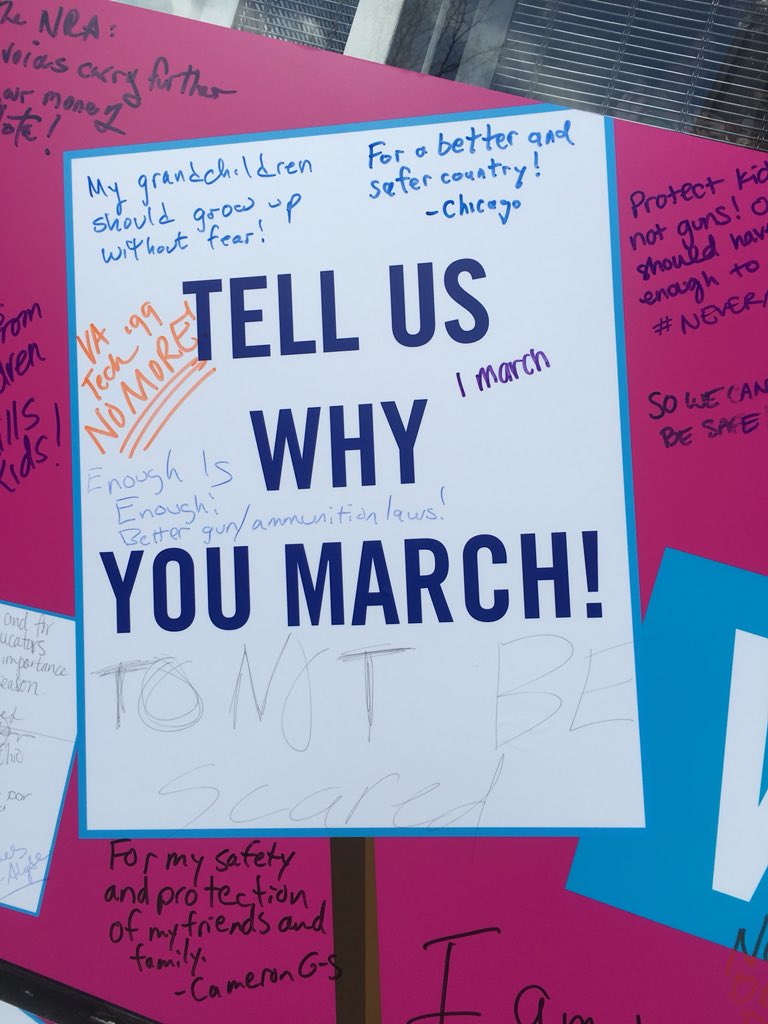 The NRA:
voices carry further
our money
Vote!
My grandchildren
should grow up
without fear!
For a better and
safer country!
-Chicago
VA '99
Tech
NO MORE!
TELL US
WHY
YOU MARCH!
I march
Enough Is
Enough!
Better gun/ammunition laws!
TO NOT BE
scared
Protect kid
not guns! O
should hav
enough to
#NEVERA
SO WE CAN
BE SAFE!
from
dren
ills
kids!
and for
ucators
importance
eason.
For my safety
and protection
of my friends and
family.
-Cameron G-S
I am